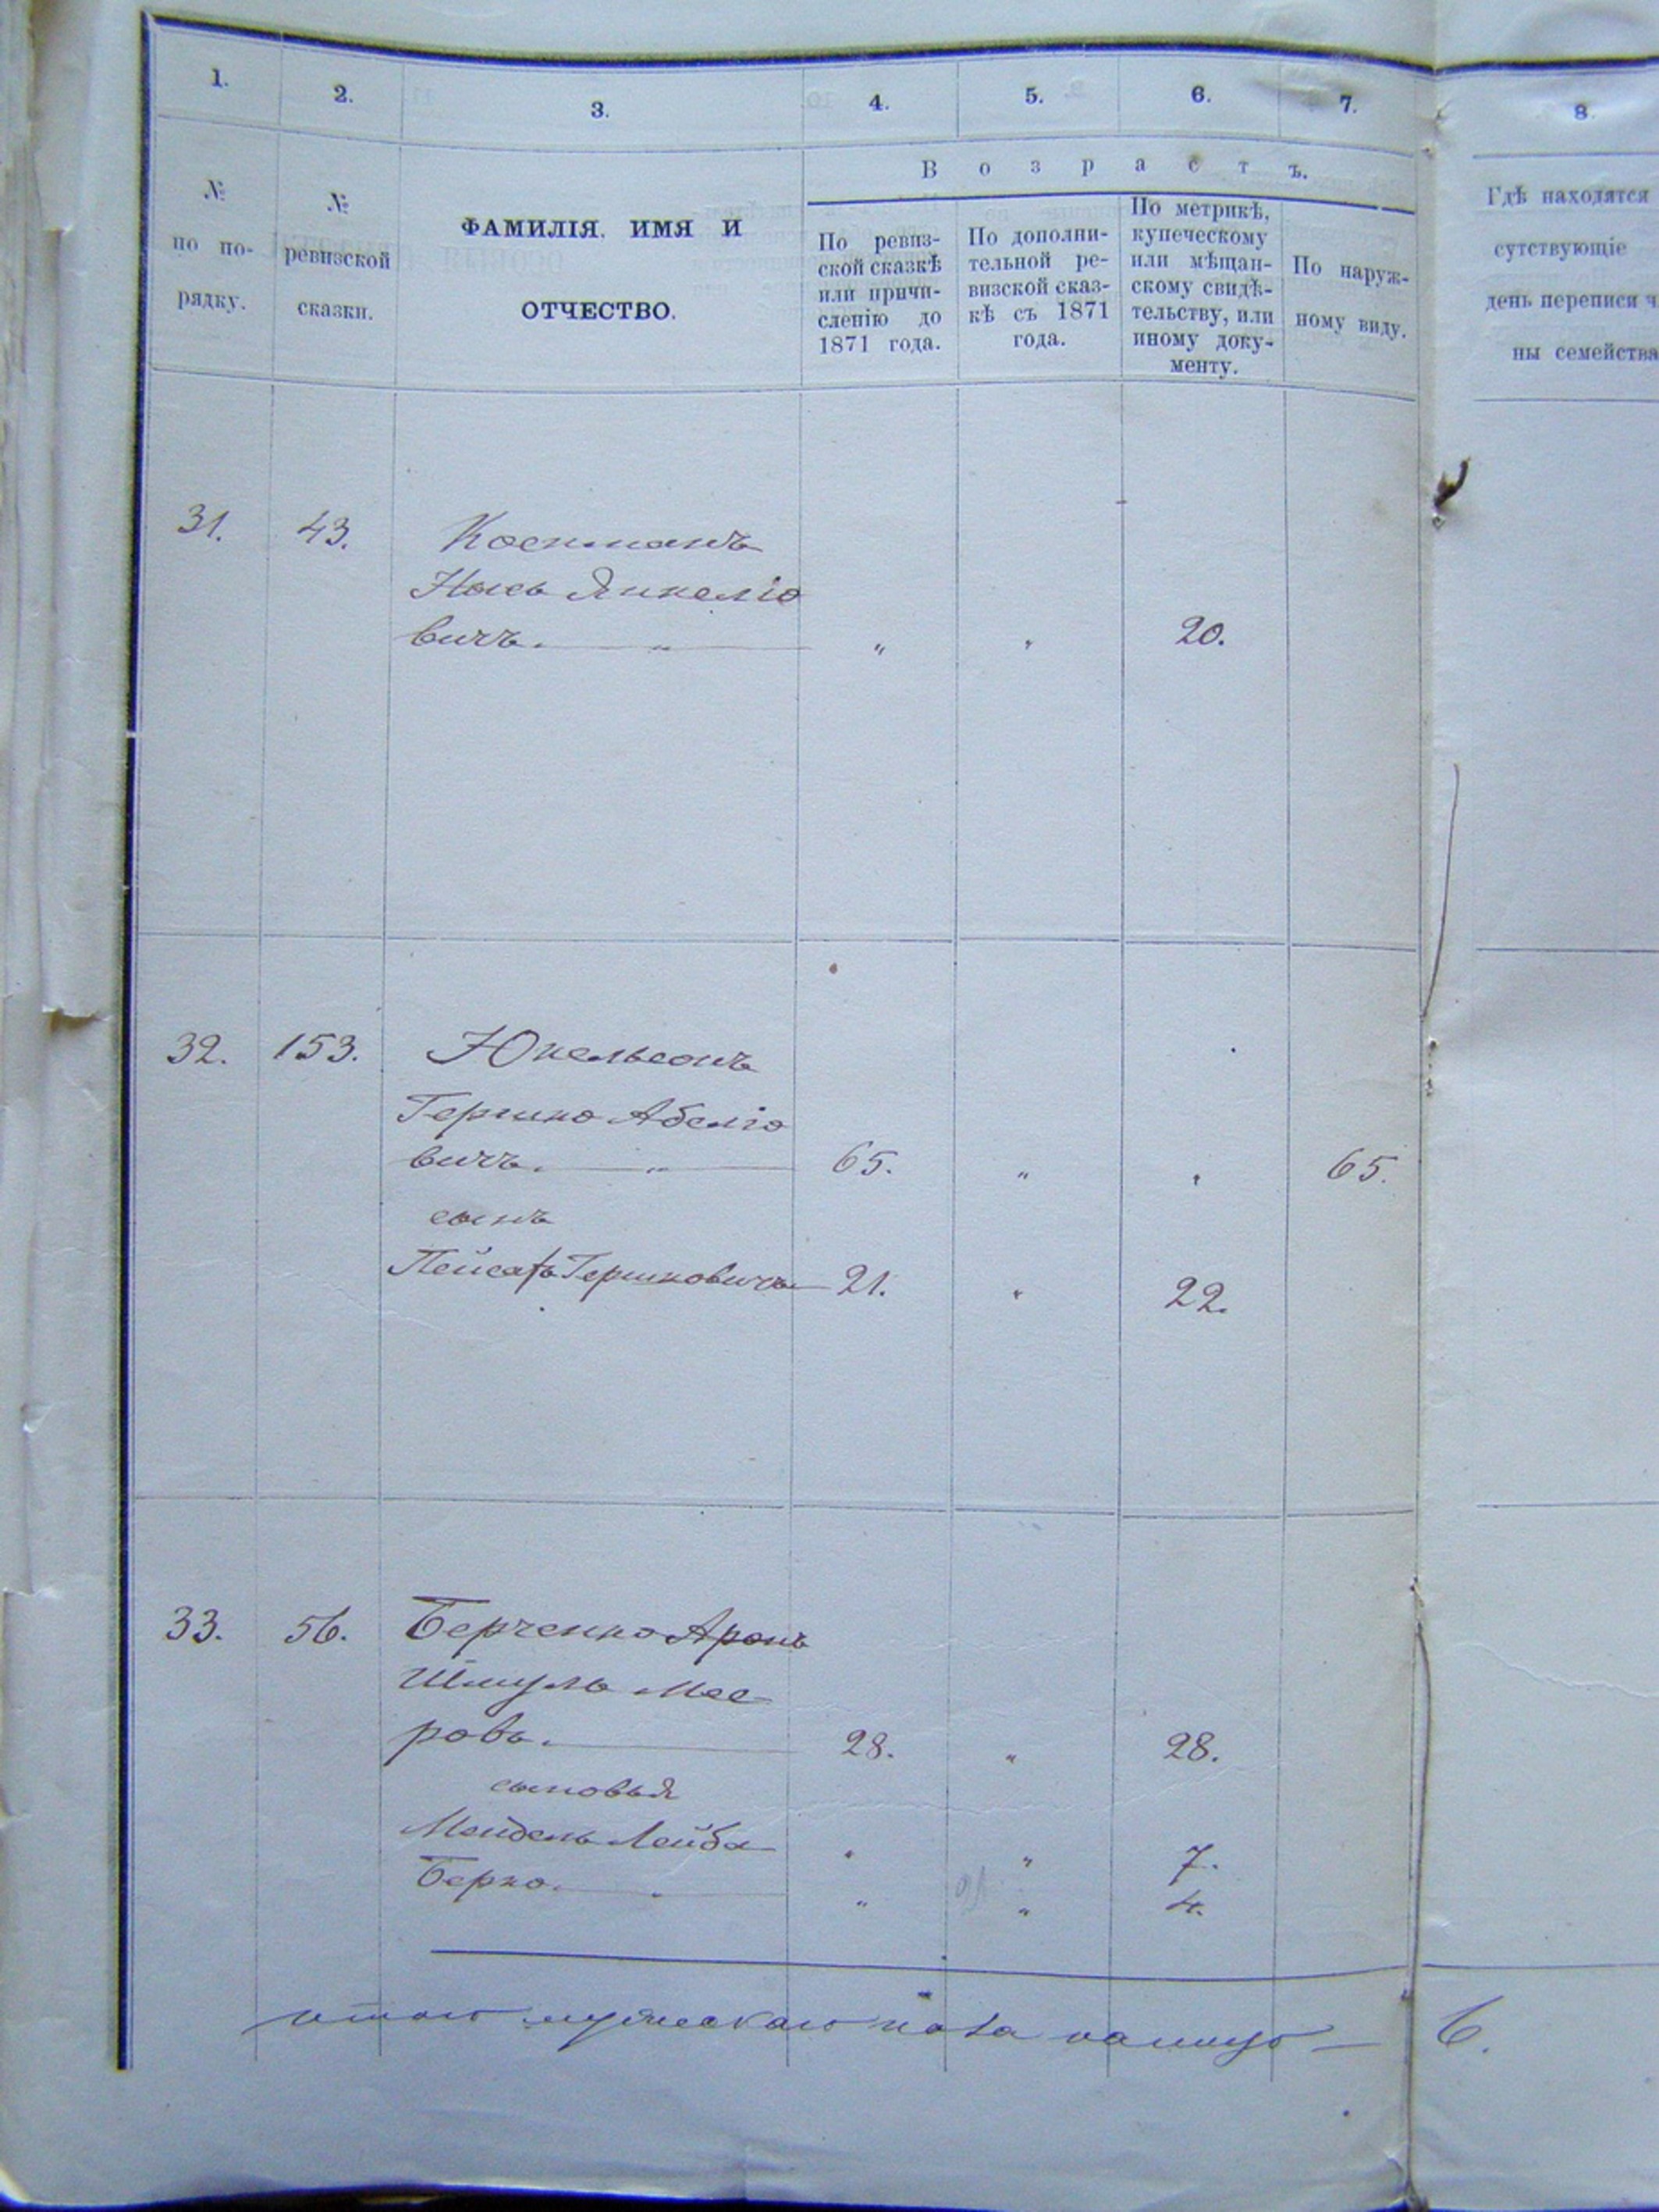 1.
2.
3.
4.
5.
6.
7.
8
Возрастъ.
№
по по-
рядку.
№
ревизской
сказки.
ФАМИЛІЯ, ИМЯ И
ОТЧЕСТВО.
По ревиз-
ской сказкѣ
или причи-
сленію до
1871 года.
По дополни-
тельной ре-
визской сказ-
кѣ съ 1871
года.
По метрикѣ,
купеческому
или мѣщан-
скому свидѣ-
тельству, или
иному доку-
менту.
По наруж-
ному виду.
Гдѣ находятся
сутствующіе
день переписи ч
ны семейства
31. 43. Косчманъ
Янкеліо
вичъ. " " " 20.
32. 153. Юкельсонъ
Гершко Абеліо
вичъ. " 65. " " 65.
сынъ
Пейсахъ Гершковичъ 21. " 22.
33. 56. Берченко Аронъ
Шмуль Мее-
ровъ. 28. " 28.
сыновья
Мендель Лейба " " 7.
Берко. " " " 4.
итого мужескаго пола налицо — 6.